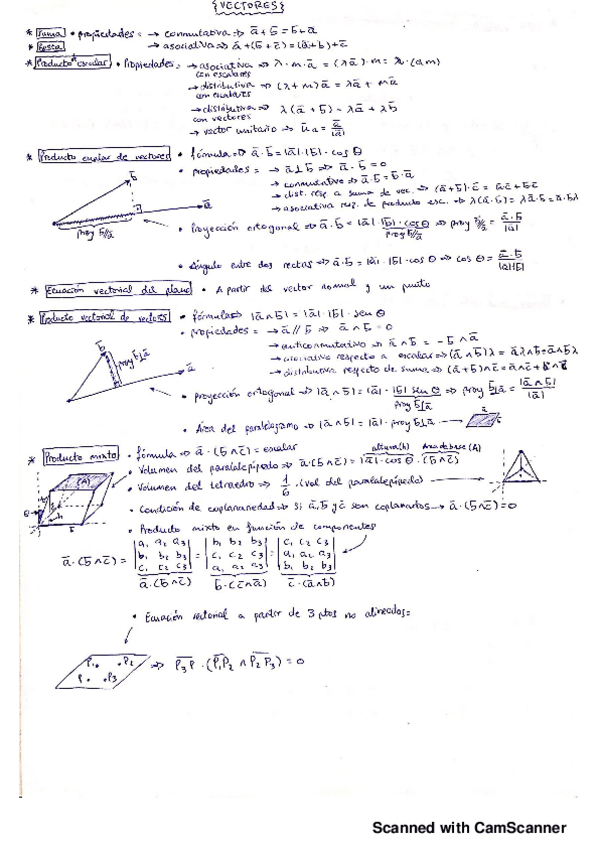 {VECTORES}
* Suma • propiedades = → conmutativa ⇒ ā + b̄ = b̄ + ā
* Resta → asociativa ⇒ ā + (b̄ + c̄) = (ā + b̄) + c̄
* Producto escalar • Propiedades = → asociativa ⇒ λ · m · ā = (λ ā) · m = λ · (ā m)
con escalares
→ distributiva ⇒ (λ + m) ā = λā + mā
con escalares
→ distributiva ⇒ λ (ā + b̄) = λā + λb̄
con vectores
→ vector unitario ⇒ ūa = ā/|ā|
* Producto escalar de vectores • fórmula ⇒ ā · b̄ = |ā| · |b̄| · cos θ
• propiedades = → ā ⊥ b̄ ⇒ ā · b̄ = 0
→ conmutativa ⇒ ā · b̄ = b̄ · ā
→ dist. resp. a suma de vec. ⇒ (ā + b̄) · c̄ = ā c̄ + b̄ c̄
→ asociativa resp. de producto esc. ⇒ λ (ā · b̄) = λā · b̄ = ā · b̄λ
b̄
ā
proy b̄/ā
• Proyección ortogonal ⇒ ā · b̄ = |ā| · |b̄| · cos θ ⇒ proy b̄/ā = ā · b̄/|ā|
proy b̄/ā
• Ángulo entre dos rectas ⇒ ā · b̄ = |ā| · |b̄| · cos θ ⇒ cos θ = ā · b̄/|ā||b̄|
* Ecuación vectorial del plano • A partir del vector normal y un punto
* Producto vectorial de vectores • fórmula ⇒ |ā ∧ b̄| = |ā| · |b̄| · sen θ
• propiedades = → ā // b̄ ⇒ ā ∧ b̄ = 0
→ anticonmutativo ⇒ ā ∧ b̄ = - b̄ ∧ ā
→ asociativa respecto a escalar ⇒ (ā ∧ b̄) λ = āλ ∧ b̄ = ā ∧ b̄λ
→ distributiva respecto de suma ⇒ (ā + b̄) ∧ c̄ = ā ∧ c̄ + b̄ ∧ c̄
b̄
proy b̄⊥ā
ā
• proyección ortogonal ⇒ |ā ∧ b̄| = |ā| · |b̄| sen θ ⇒ proy b̄⊥ā = |ā ∧ b̄|/|ā|
proy b̄⊥ā
• Área del paralelogramo ⇒ |ā ∧ b̄| = |ā| · proy b̄⊥ā
* Producto mixto • fórmula ⇒ ā · (b̄ ∧ c̄) = escalar
altura (h) Área de base (A)
• Volumen del paralelepípedo ⇒ ā · (b̄ ∧ c̄) = |ā| · cos θ · (b̄ ∧ c̄)
(A)
• Volumen del tetraedro ⇒ 1/6 · (vol del paralelepípedo)
• Condición de coplanariedad ⇒ Si ā, b̄ y c̄ son coplanarios → ā · (b̄ ∧ c̄) = 0
• Producto mixto en función de componentes
ā · (b̄ ∧ c̄) = |a₁ a₂ a₃| = |b₁ b₂ b₃| = |c₁ c₂ c₃|
|b₁ b₂ b₃| |c₁ c₂ c₃| |a₁ a₂ a₃|
|c₁ c₂ c₃| |a₁ a₂ a₃| |b₁ b₂ b₃|
ā · (b̄ ∧ c̄) b̄ · (c̄ ∧ ā) c̄ · (ā ∧ b̄)
• Ecuación vectorial a partir de 3 ptos no alineados =
P₁ • P₂
P • P₃
⇒ P₃P · (P₁P₂ ∧ P₂P₃) = 0
Scanned with CamScanner